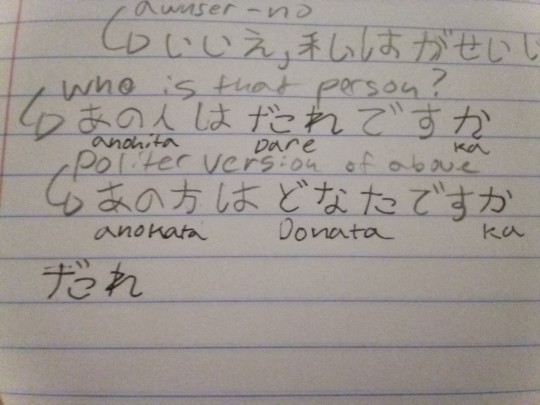 awnser-no
いいえ,私はがせいじ
who is that person?
あの人はだれですか
anohita Dare ka
politer version of above
あの方はどなたですか
anokata Donata ka
だれ